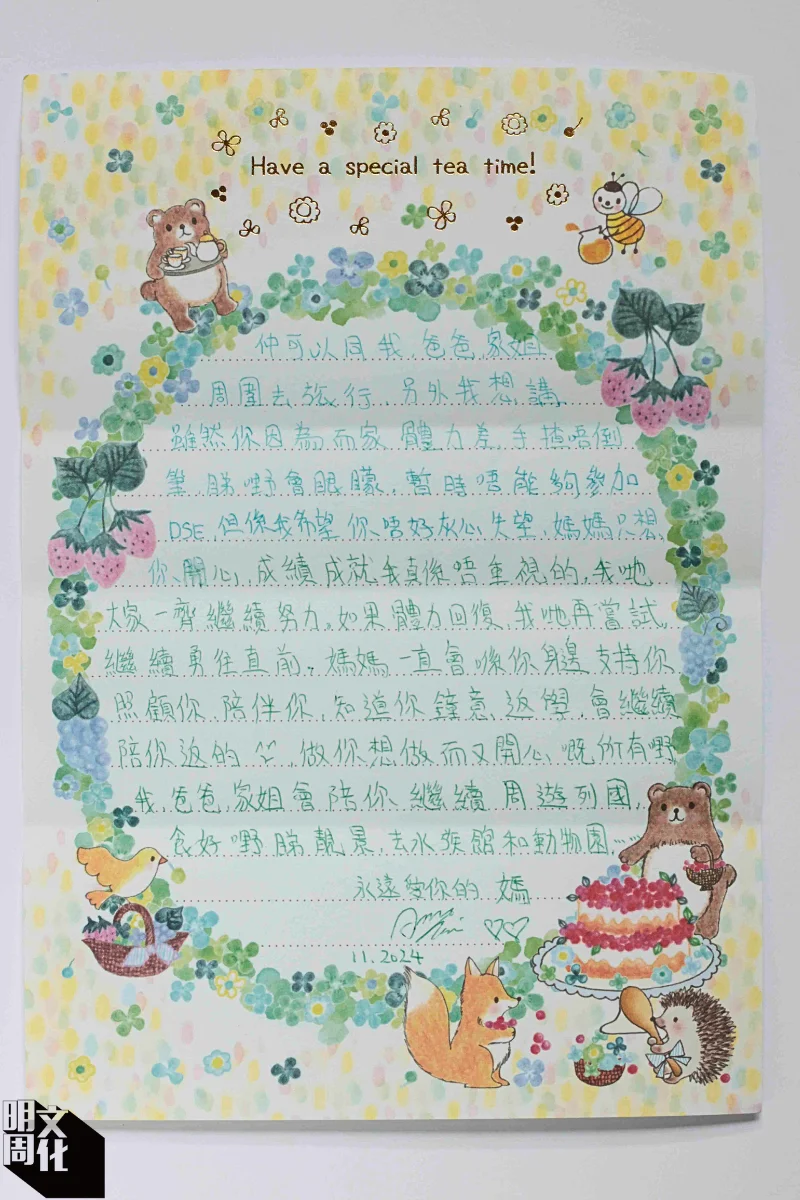 Have a special tea time!
仲可以同我、爸爸、家姐
周圍去旅行、另外我想講、
雖然你因為而家體力差、手揸唔倒
筆、睇嘢會眼矇、暫時唔能夠參加
DSE、但係我希望你唔好灰心失望、媽媽只想
你開心、成績成就我真係唔重視的、我哋
大家一齊繼續努力。如果體力回復、我哋再嘗試、
繼續勇往直前。媽媽一直會喺你身邊支持你
照顧你、陪伴你、知道你鐘意返學、會繼續
陪你返的、做你想做而又開心嘅所有嘢
我、爸爸、家姐會陪你繼續周遊列國、
食好嘢睇靚景、去水族館和動物園……
永遠愛你的 媽
11.2024
明周文化